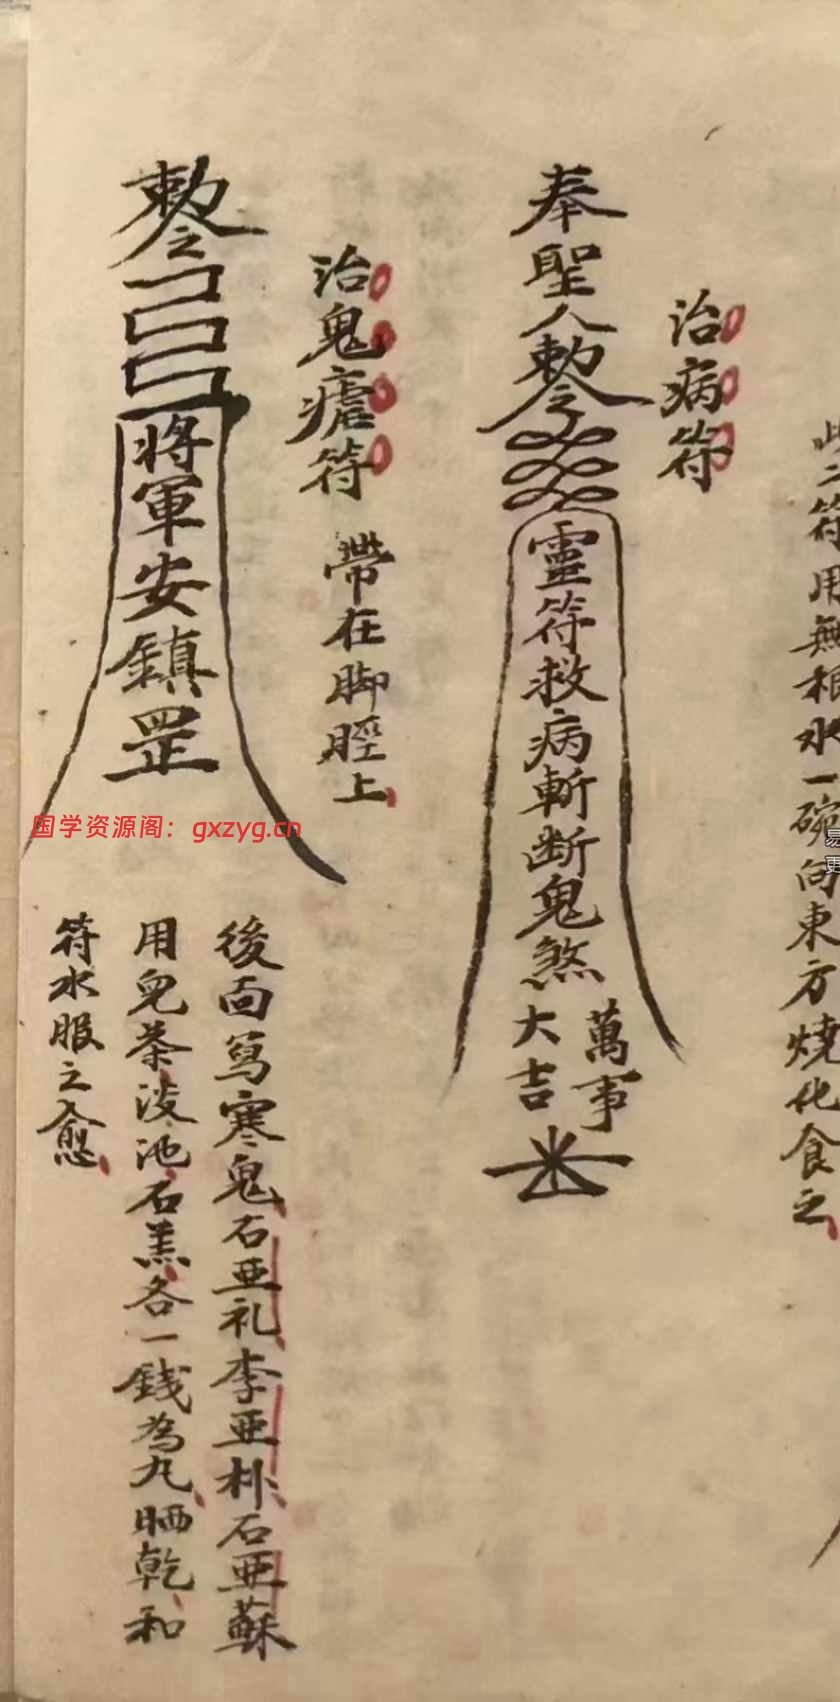 此二符用無根水一碗向東方燒化食之
治病符
奉聖人敕令
靈符救病斬断鬼煞
萬事
大吉
治鬼瘧符 帶在脚脛上
敕令
將軍安鎮罡
後面寫寒鬼石亜礼李亜朴石亜蘇
用兒茶淡池石羔各一錢為九晒乾和
符水服之愈
国学资源阁：gxzyg.cn
易
更